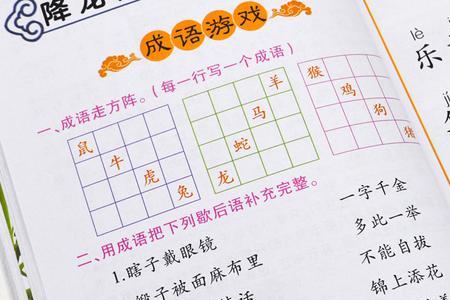 降龙
成语游戏
一、成语走方阵。(每一行写一个成语)
鼠
牛
虎
兔
羊
马
蛇
龙
猴
鸡
狗
猪
二、用成语把下列歇后语补充完整。
1.瞎子戴眼镜
一字千金
多此一举
不能自拔
锦上添花
lè
乐